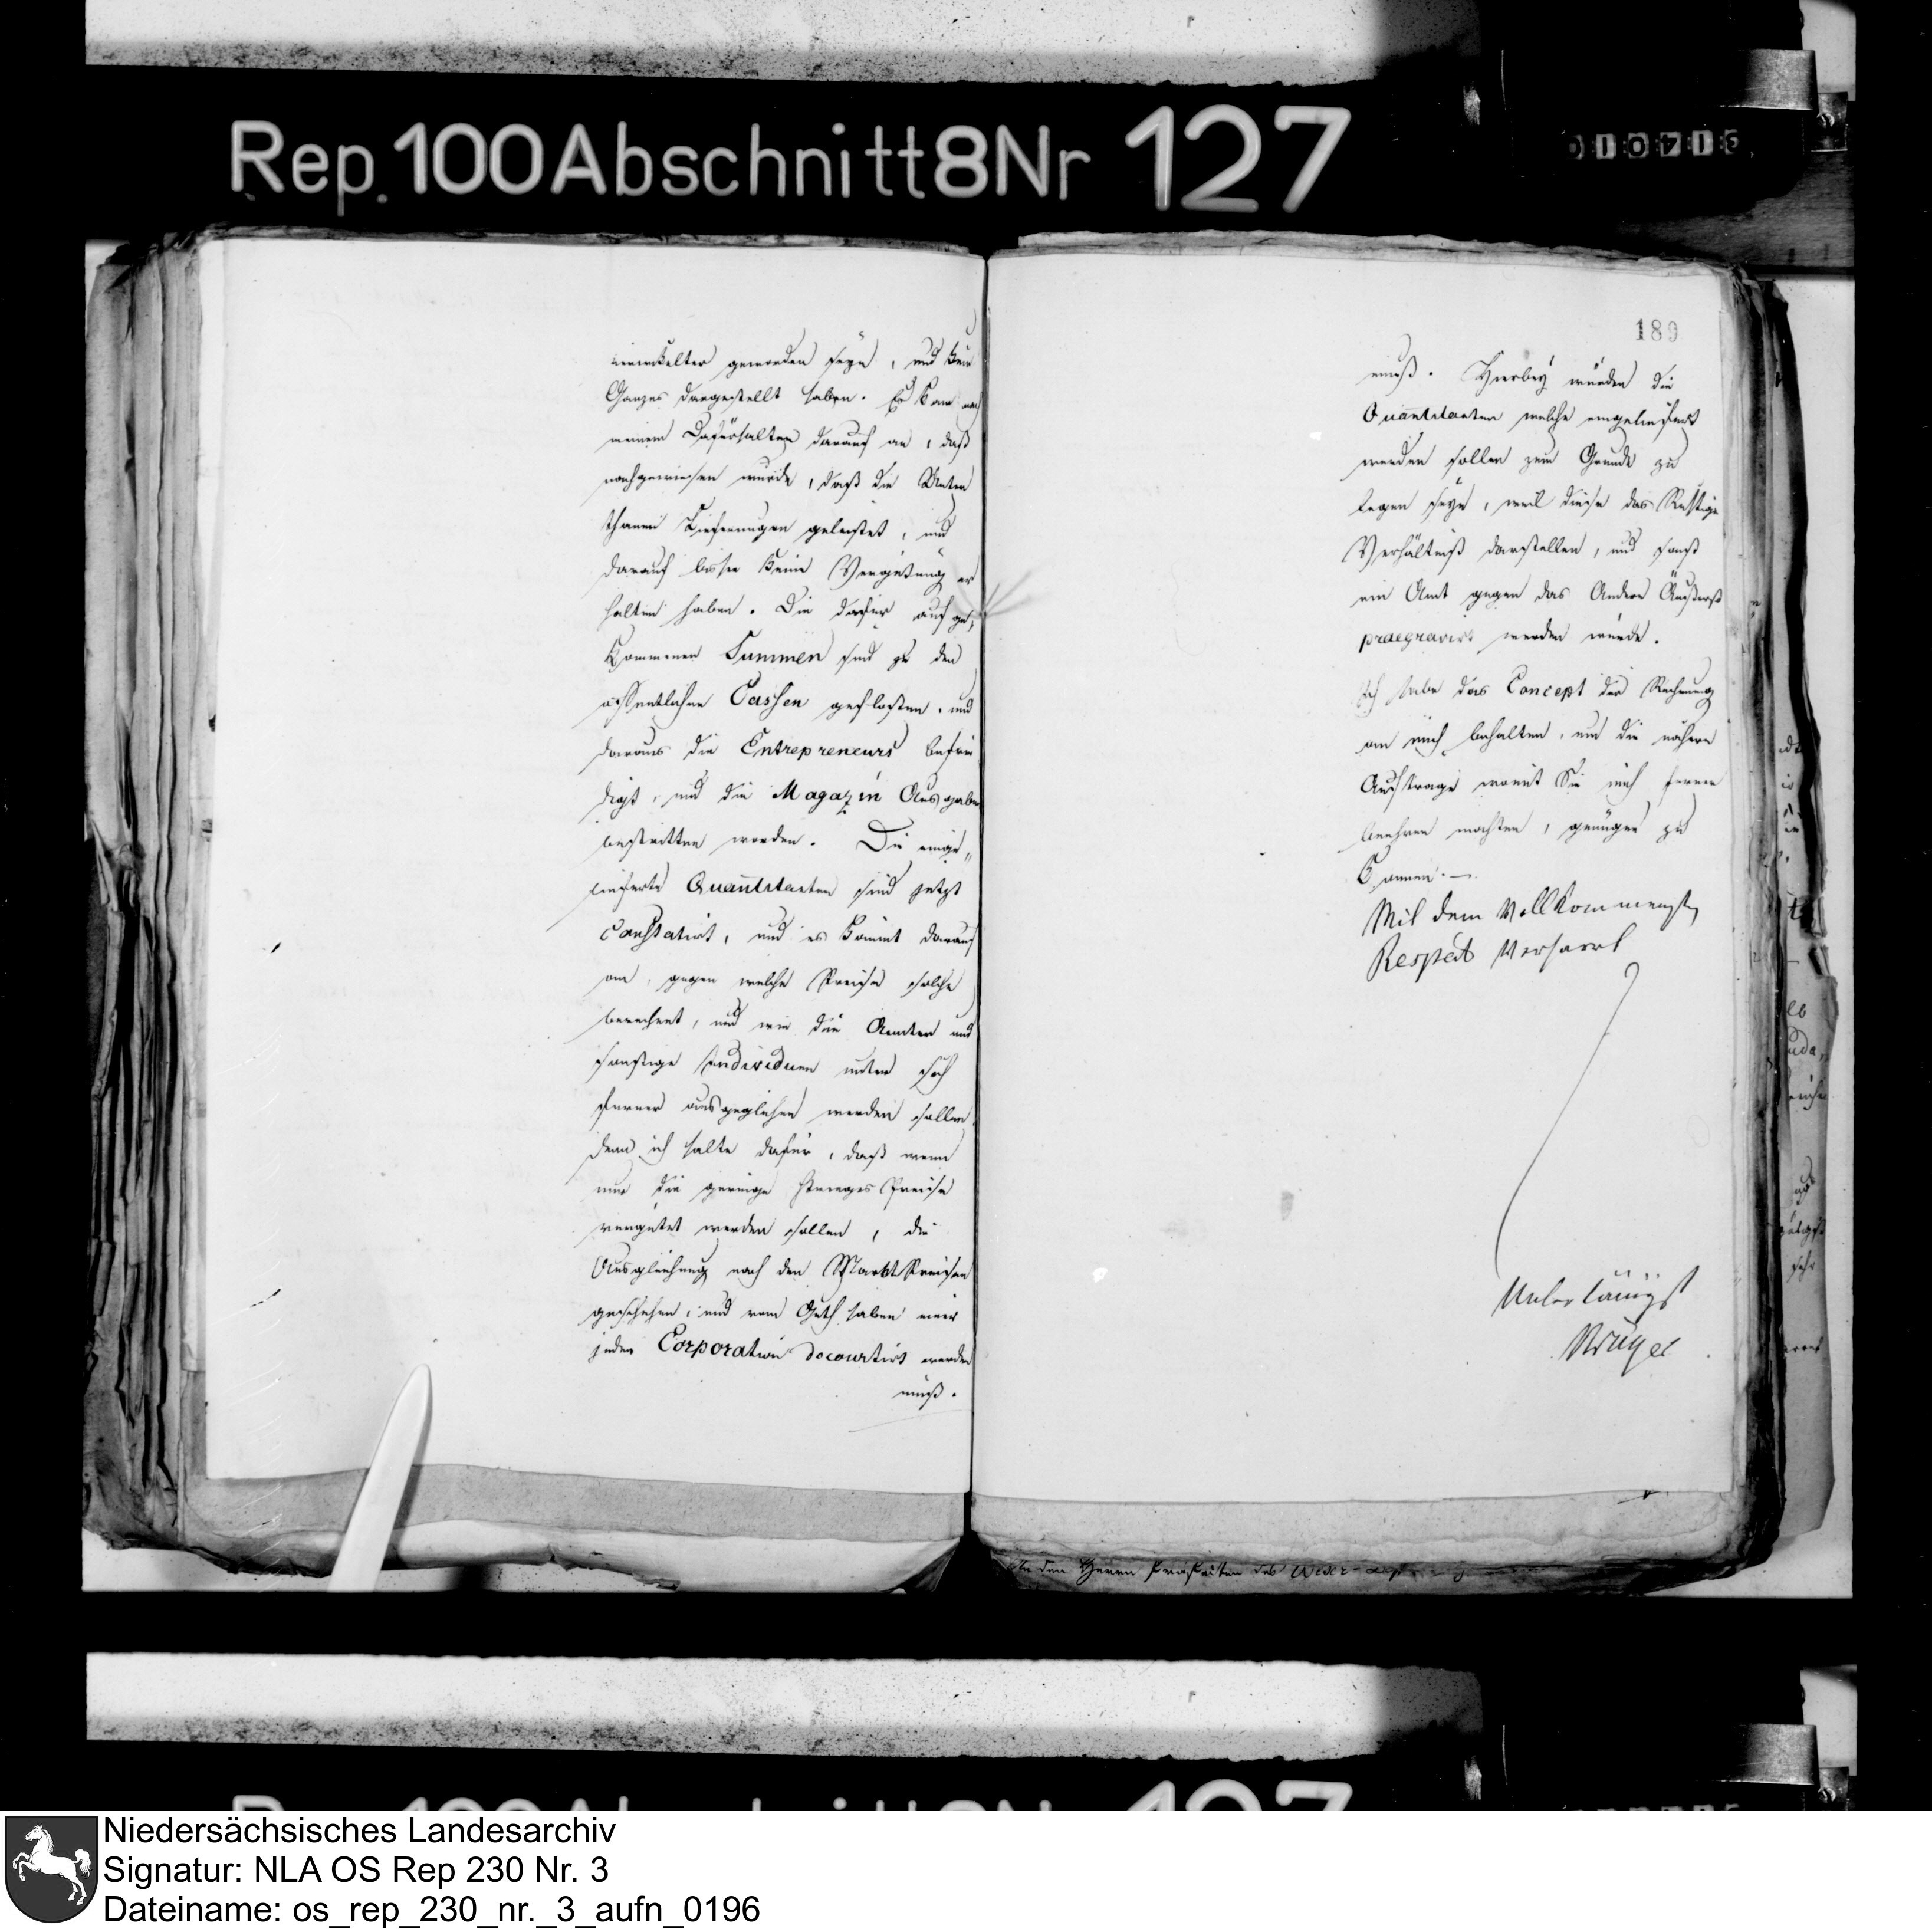 Rep. 100 Abschnitt 8 Nr 127
verwickelter geworden seyn, und kein
Ganzes dargestellt haben. Es kam nach
meinem Dafürhalten darauf an, daß
nachgewiesen wurde, daß die Unter
thanen Lieferungen geleistet, und
darauf bisher keine Vergütung er
halten haben. Die dafür aufge¬
kommenen Summen sind zu den
öffentlichen Cassen geflossen, und
daraus die Entrepreneurs befrie
digt, und die Magazin Ausgaben
bestritten worden. Die einge„
lieferte Quantitaeten sind jetzt
constatirt, und es kömmt darauf
an, gegen welche Preise solche
berechnet, und wie die Aemter und
sonstige Individuen unter sich
ferner ausgeglichen werden sollen,
denn ich halte dafür, daß wenn
nur die geringe Preise
vergütet werden sollen, die
Ausgleichung nach den Markt Preisen
geschehen, und vom Guth haben einer
jeden Corporation decourtirt werden
muß.
189
muß. Hierbey würden die
Quantitaeten welche eingeliefert
werden sollen zum Grunde zu
legen seyn, weil diese das Richtige
Verhältniß darstellen, und sonst
ein Amt gegen das Andere Äußerst
praegravirt werden würde.
Ich habe das Concept der Rechnung
an mich behalten, um die nähere
Auftrage womit Sie mich ferner
beehren mochten, genügen zu
können. —
Mit dem Vollkommensten
Respect Verharrt
Unterthänigst
Krüger
An den Herrn Präfecten des
Niedersächsisches Landesarchiv
Signatur: NLA OS Rep 230 Nr. 3
Dateiname: os_rep_230_nr._3_aufn_0196